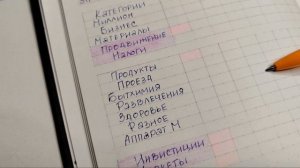 Категории
Миллион
Бизнес
Материалы
Продвижение
Налоги
Продукты
Проезд
Бытхимия
Развлечения
Здоровье
Разное
Аппарат М
Инвестиции